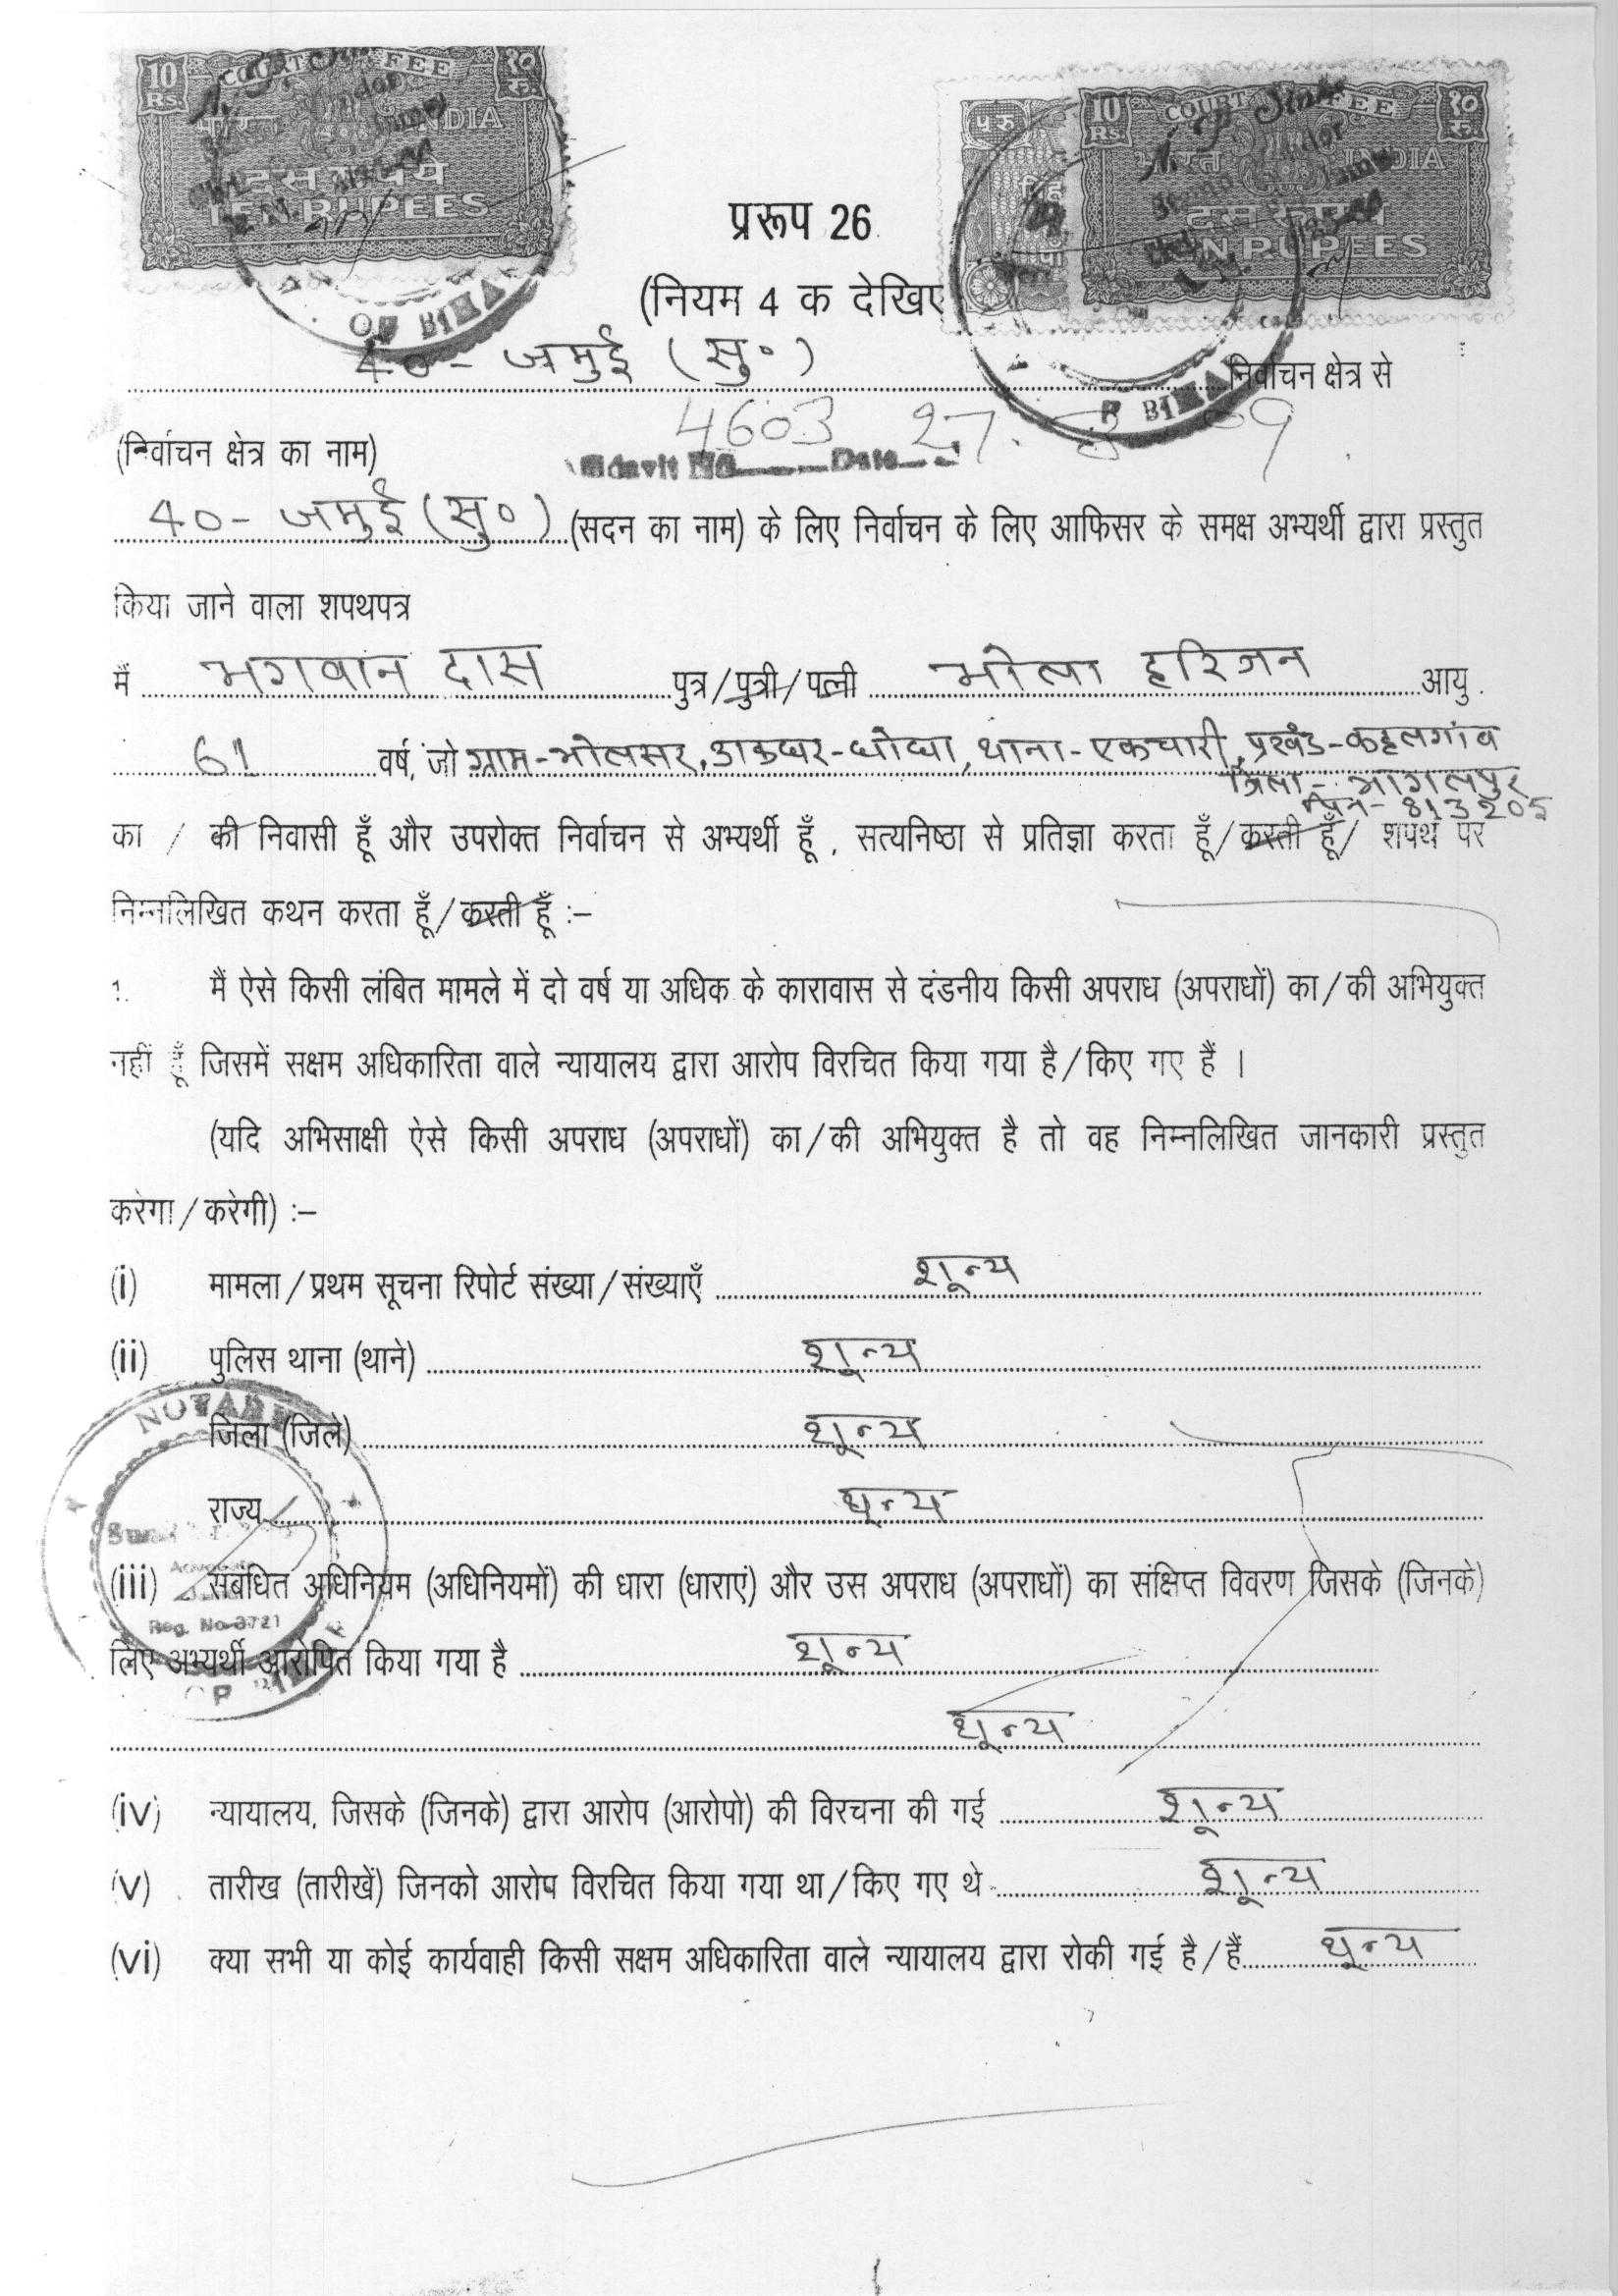 10 Rs. COURT FEE १० रु.
भारत INDIA
दस रुपये
TEN RUPEES
OF BIHAR
10 Rs. COURT FEE १० रु.
भारत INDIA
दस रुपये
TEN RUPEES
BIHAR
प्ररूप 26
(नियम 4 क देखिए
40- जमुई (सु०) निर्वाचन क्षेत्र से
(निर्वाचन क्षेत्र का नाम)
4603 Date 27. 09
40- जमुई (सु०) (सदन का नाम) के लिए निर्वाचन के लिए आफिसर के समक्ष अभ्यर्थी द्वारा प्रस्तुत
किया जाने वाला शपथपत्र
मैं भगवान दास पुत्र/पुत्री/पत्नी भोला हरिजन आयु
61 वर्ष, जो ग्राम-भोलसर, डाकघर-घोघा, थाना-एकचारी, प्रखंड-कहलगांव
जिला- भागलपुर
पिन- 813205
का / की निवासी हूँ और उपरोक्त निर्वाचन से अभ्यर्थी हूँ , सत्यनिष्ठा से प्रतिज्ञा करता हूँ/करती हूँ/ शपथ पर
निम्नलिखित कथन करता हूँ/करती हूँ :–
1. मैं ऐसे किसी लंबित मामले में दो वर्ष या अधिक के कारावास से दंडनीय किसी अपराध (अपराधों) का/की अभियुक्त
नहीं हूँ जिसमें सक्षम अधिकारिता वाले न्यायालय द्वारा आरोप विरचित किया गया है/किए गए हैं ।
(यदि अभिसाक्षी ऐसे किसी अपराध (अपराधों) का/की अभियुक्त है तो वह निम्नलिखित जानकारी प्रस्तुत
करेगा/करेगी) :–
(i) मामला/प्रथम सूचना रिपोर्ट संख्या/संख्याएँ शून्य
(ii) पुलिस थाना (थाने) शून्य
जिला (जिले) शून्य
राज्य शून्य
NOTARY
Reg. No-3721
(iii) संबंधित अधिनियम (अधिनियमों) की धारा (धाराएं) और उस अपराध (अपराधों) का संक्षिप्त विवरण जिसके (जिनके)
लिए अभ्यर्थी आरोपित किया गया है शून्य
शून्य
(iv) न्यायालय, जिसके (जिनके) द्वारा आरोप (आरोपो) की विरचना की गई शून्य
(v) तारीख (तारीखें) जिनको आरोप विरचित किया गया था/किए गए थे शून्य
(vi) क्या सभी या कोई कार्यवाही किसी सक्षम अधिकारिता वाले न्यायालय द्वारा रोकी गई है/हैं शून्य